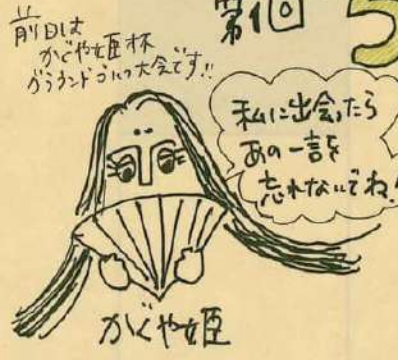 前日は
かぐや姫杯
グラウンドゴルフ大会です!!
第1回
私に出会ったら
あの一言を
忘れないでね!
かぐや姫